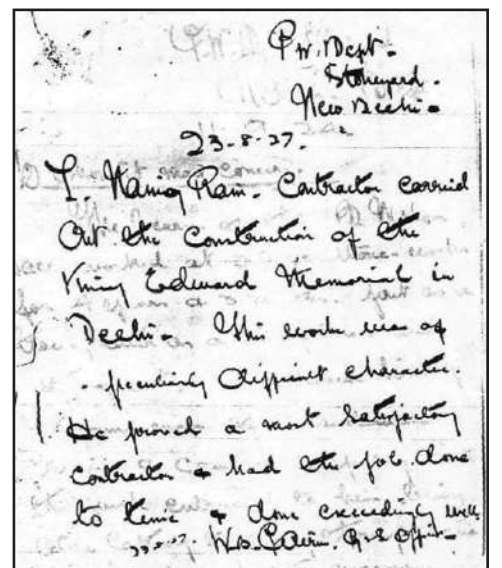 P.W. Dept.
Stoneyard.
New Delhi.
23-8-27.
Ram. Contractor carried
Out the Construction of the
King Edward Memorial in
Delhi. This work was of
peculiarly difficult character.
He proved a most satisfactory
Contractor & had the job done
to time & done exceedingly well